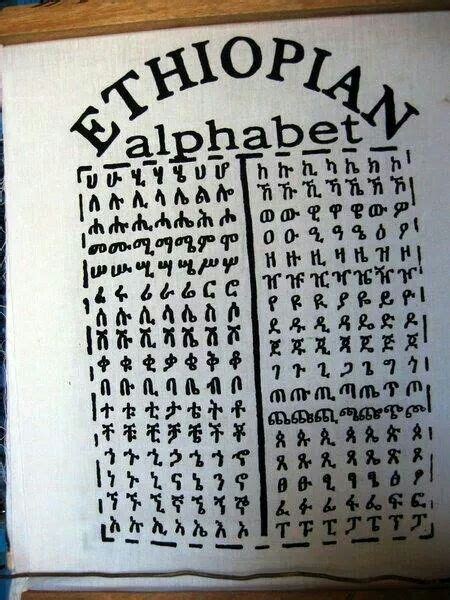 ETHIOPIAN
alphabet
ሀ ሁ ሂ ሃ ሄ ህ ሆ
ለ ሉ ሊ ላ ሌ ል ሎ
ሐ ሑ ሒ ሓ ሔ ሕ ሖ
መ ሙ ሚ ማ ሜ ም ሞ
ሠ ሡ ሢ ሣ ሤ ሥ ሦ
ረ ሩ ሪ ራ ሬ ር ሮ
ሰ ሱ ሲ ሳ ሴ ስ ሶ
ሸ ሹ ሺ ሻ ሼ ሽ ሾ
ቀ ቁ ቂ ቃ ቄ ቅ ቆ
በ ቡ ቢ ባ ቤ ብ ቦ
ተ ቱ ቲ ታ ቴ ት ቶ
ቸ ቹ ቺ ቻ ቼ ች ቾ
ኀ ኁ ኂ ኃ ኄ ኅ ኆ
ነ ኑ ኒ ና ኔ ን ኖ
ኘ ኙ ኚ ኛ ኜ ኝ ኞ
አ ኡ ኢ ኣ ኤ እ ኦ
ከ ኩ ኪ ካ ኬ ክ ኮ
ኸ ኹ ኺ ኻ ኼ ኽ ኾ
ወ ዉ ዊ ዋ ዌ ው ዎ
ዐ ዑ ዒ ዓ ዔ ዕ ዖ
ዘ ዙ ዚ ዛ ዜ ዝ ዞ
ዠ ዡ ዢ ዣ ዤ ዥ ዦ
የ ዩ ዪ ያ ዬ ይ ዮ
ደ ዱ ዲ ዳ ዴ ድ ዶ
ጀ ጁ ጂ ጃ ጄ ጅ ጆ
ገ ጉ ጊ ጋ ጌ ግ ጎ
ጠ ጡ ጢ ጣ ጤ ጥ ጦ
ጨ ጩ ጪ ጫ ጬ ጭ ጮ
ጰ ጱ ጲ ጳ ጴ ጵ ጶ
ጸ ጹ ጺ ጻ ጼ ጽ ጾ
ፀ ፁ ፂ ፃ ፄ ፅ ፆ
ፈ ፉ ፊ ፋ ፌ ፍ ፎ
ፐ ፑ ፒ ፓ ፔ ፕ ፖ